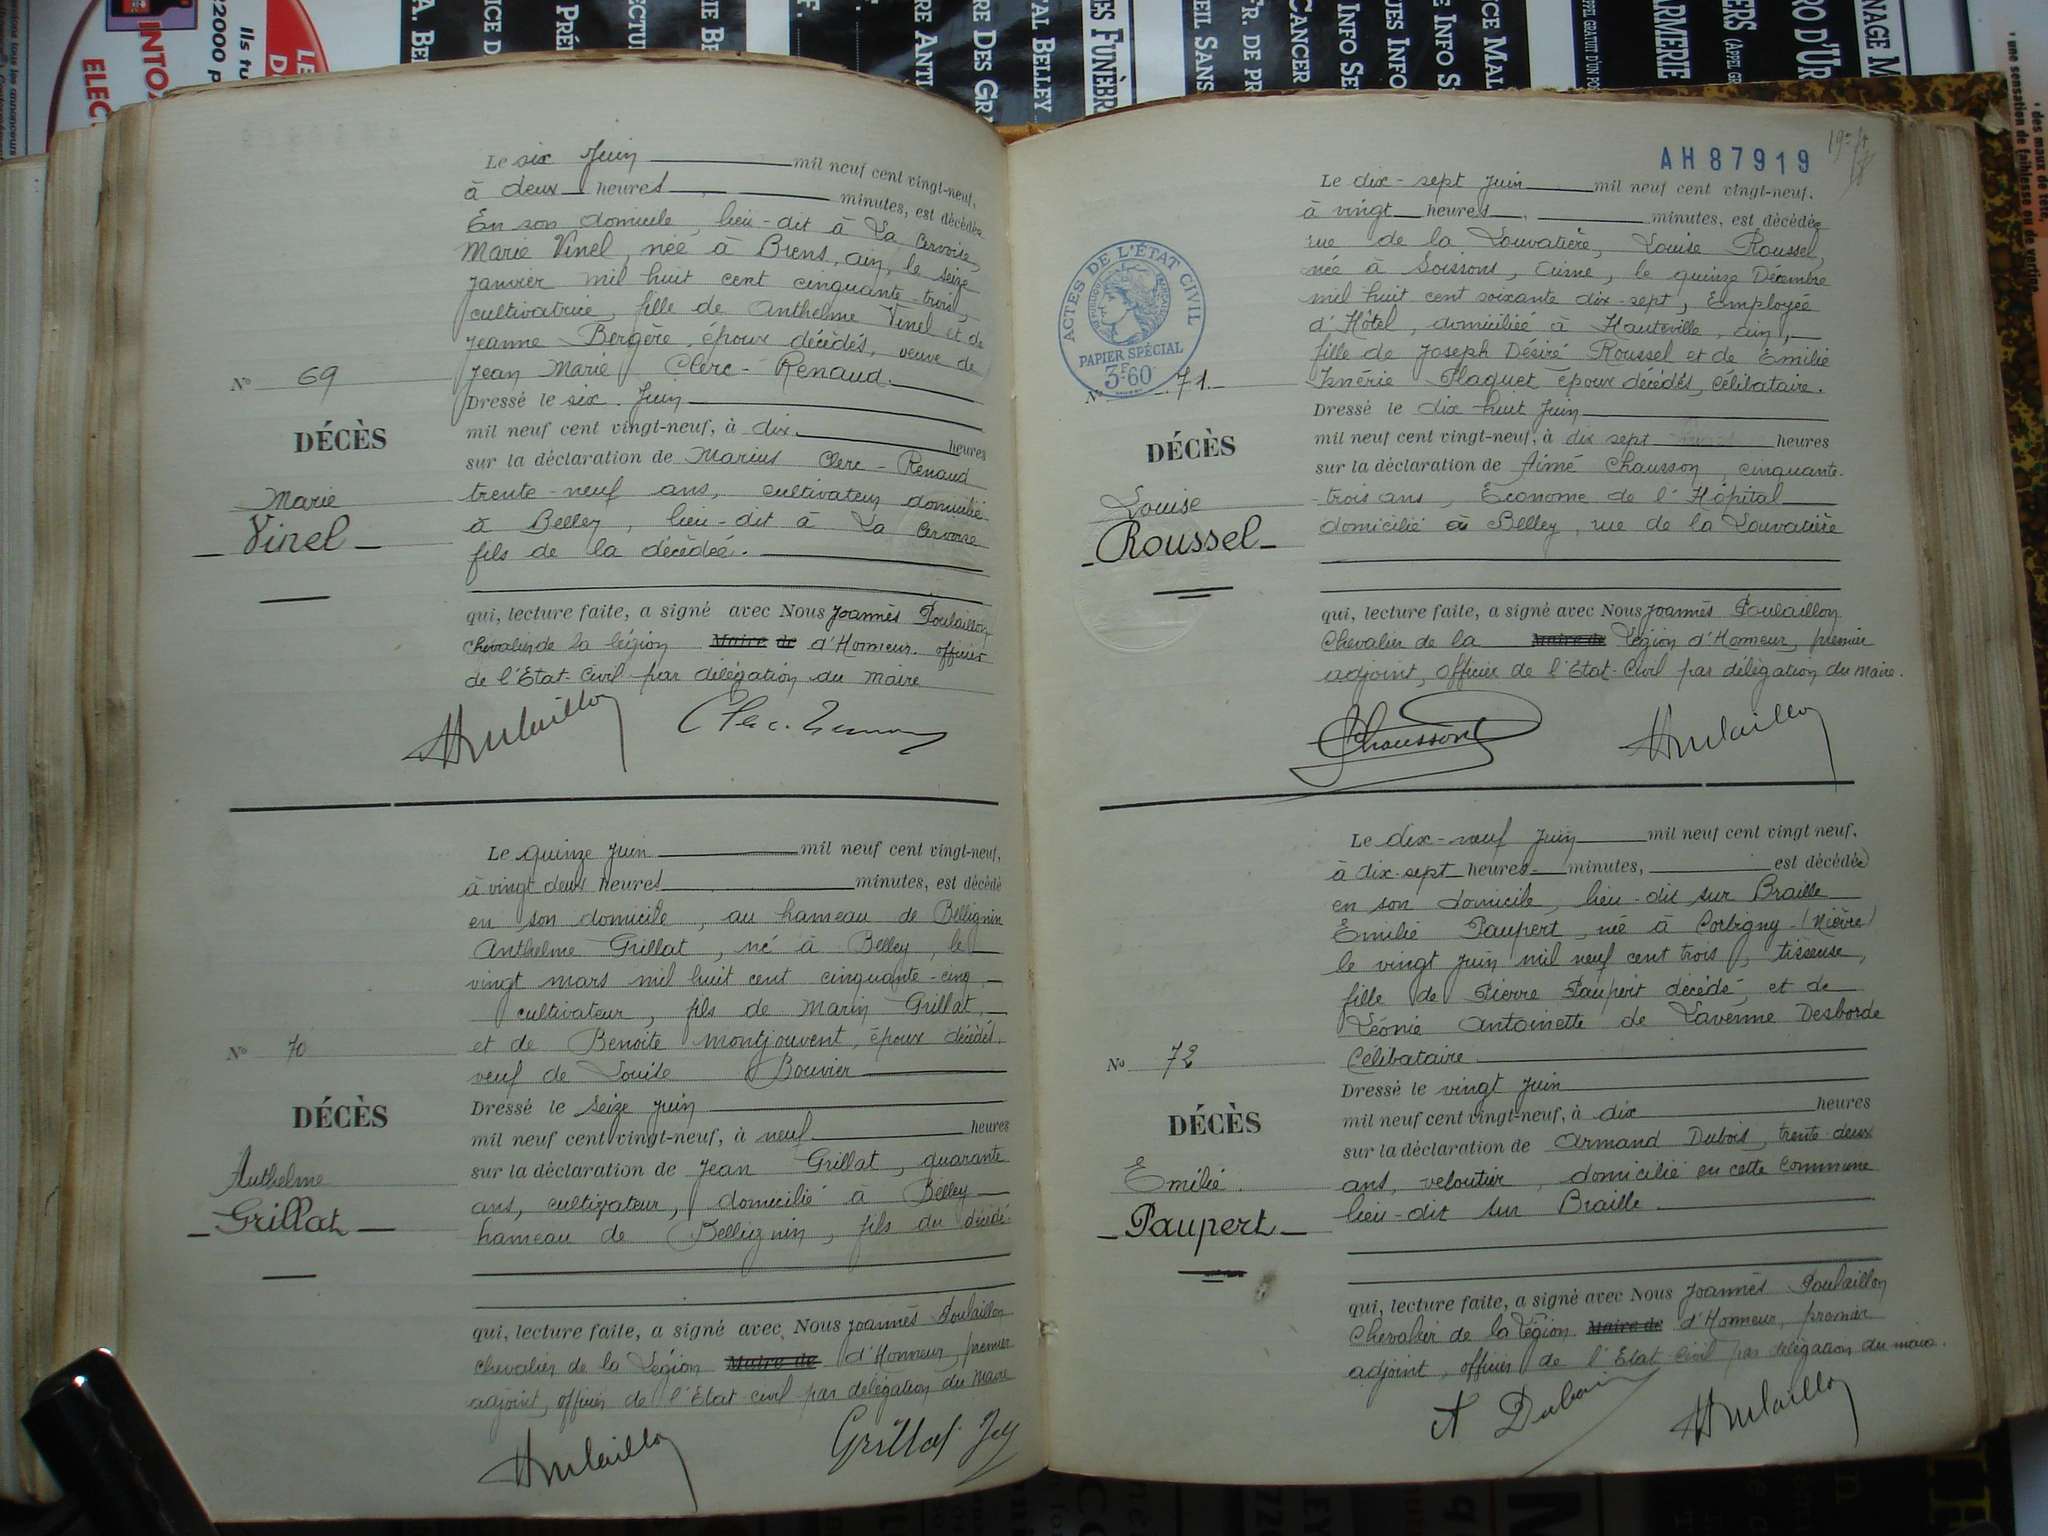 LE
Ils tu
22000 p
INTOX
ELEC
A. BE
ICE D
PRÉ
LECTU
IE BE
F.
RE ANTI
RE DES GR
'AL BELLEY
ES FUNÈBR
EIL SANS
R. DE PR
CANCER
INFO SE
UES INFO
E INFO S
CE MAL
APPEL GRATUIT D'UN PO
ARMERIE
ERS (APPEL GR
RO D'UR
NAGE M
une sensation de faiblesse ou de vertige,
des maux de tête,
Le six Juin mil neuf cent vingt-neuf,
à deux heures, minutes, est décédée
En son domicile, lieu-dit à La Cervoise,
Marie Vinel, née à Brens, ain, le seize
Janvier mil huit cent cinquante-trois,
cultivatrice, fille de Anthelme Vinel et de
Jeanne Bergère, époux décédés, veuve de
Jean Marie Clerc-Renaud.
Dressé le six Juin
mil neuf cent vingt-neuf, à dix heures
sur la déclaration de Marius Clerc-Renaud
trente-neuf ans, cultivateur domicilié
à Belley, lieu-dit à La Cervoise
fils de la décédée.
qui, lecture faite, a signé avec Nous Joannès Poulaillon
Chevalier de la légion Maire de d'Honneur officier
de l'Etat-Civil par délégation du Maire
Nº 69
DÉCÈS
Marie
Vinel
Poulaillon
Clerc-Renaud
Le quinze Juin mil neuf cent vingt-neuf,
à vingt deux heures minutes, est décédé
en son domicile, au hameau de Billignin
Anthelme Grillat, né à Belley, le
vingt mars mil huit cent cinquante-cinq
cultivateur, fils de Marin Grillat,
et de Benoite Montjouvent, époux décédés.
veuf de Louise Bouvier
Dressé le seize Juin
mil neuf cent vingt-neuf, à neuf heures
sur la déclaration de Jean Grillat, quarante
ans, cultivateur, domicilié à Belley
hameau de Billignin, fils du décédé.
qui, lecture faite, a signé avec Nous Joannès Poulaillon
Chevalier de la Légion Maire de d'Honneur, premier
adjoint, officier de l'Etat-civil par délégation du Maire
Nº 70
DÉCÈS
Anthelme
Grillat
Poulaillon
Grillat
AH 87919
Le dix-sept Juin mil neuf cent vingt-neuf.
à vingt heures, minutes, est décédée
rue de la Louvatière, Louise Roussel,
née à Soissons, Aisne, le quinze Décembre
mil huit cent soixante dix-sept, Employée
d'Hôtel, domiciliée à Hauteville, ain,
fille de Joseph Désiré Roussel et de Emilie
Plaquet époux décédés, Célibataire.
Dressé le dix huit Juin
mil neuf cent vingt-neuf, à dix sept heures
sur la déclaration de Aimé Chausson, cinquante-
-trois ans, Econome de l'Hôpital
domicilié à Belley, rue de la Louvatière
qui, lecture faite, a signé avec Nous Joannès Poulaillon
Chevalier de la Maire de Légion d'Honneur, premier
adjoint, Officier de l'Etat-Civil par délégation du Maire.
ACTES DE L'ÉTAT CIVIL
RÉPUBLIQUE FRANÇAISE
PAPIER SPÉCIAL
3F60
Nº 71.
DÉCÈS
Louise
Roussel
Chausson
Poulaillon
Le dix-neuf Juin mil neuf cent vingt neuf,
à dix-sept heures minutes, est décédée
en son domicile, lieu-dit sur Braille
Emilie Paupert, née à Corbigny (Nièvre)
le vingt Juin mil neuf cent trois, tisseuse,
fille de Pierre Paupert décédé, et de
Léonie Antoinette de Lavenne Desborde
Célibataire.
Dressé le vingt Juin
mil neuf cent vingt-neuf, à dix heures
sur la déclaration de Armand Dubois, trente deux
ans, veloutier, domicilié en cette Commune
lieu-dit sur Braille.
qui, lecture faite, a signé avec Nous Joannès Poulaillon
Chevalier de la Légion Maire de d'Honneur, premier
adjoint, officier de l'Etat-Civil par délégation du maire.
Nº 72
DÉCÈS
Emilie.
Paupert
A Dubois
Poulaillon